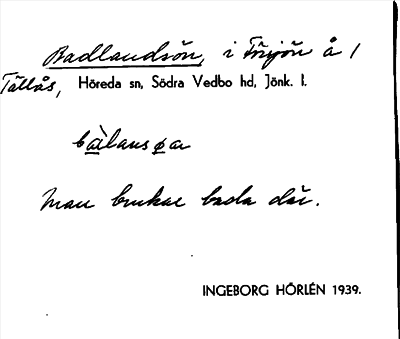 Badlandsön, i Försjön å /
Tällås, Höreda sn, Södra Vedbo hd, Jönk. l.
bàlansøa
Man brukar bada där.
INGEBORG HÖRLÉN 1939.